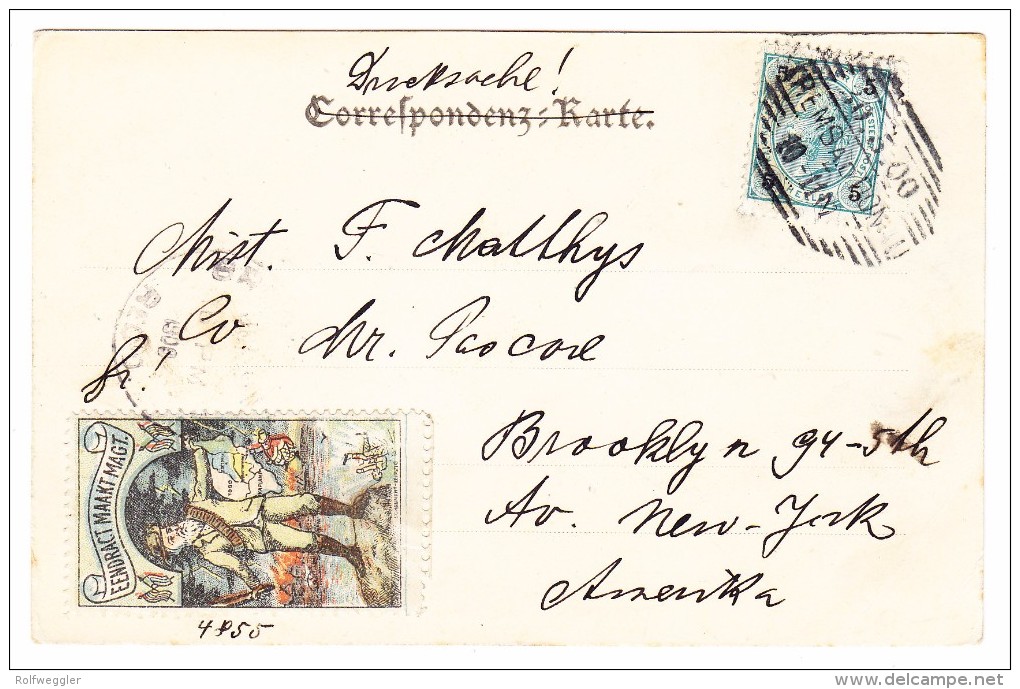 Drucksache!
Correspondenz-Karte.
5 5
5
KREMSIER
10-11V
00
Mist. F. Matthys
Co. Mr.
fr!
1900
Brooklyn 94-5th
Av. New-York
Amerika
EENDRACT MAAKT MAGT.
4955
Rolfweggler
delcampe.net